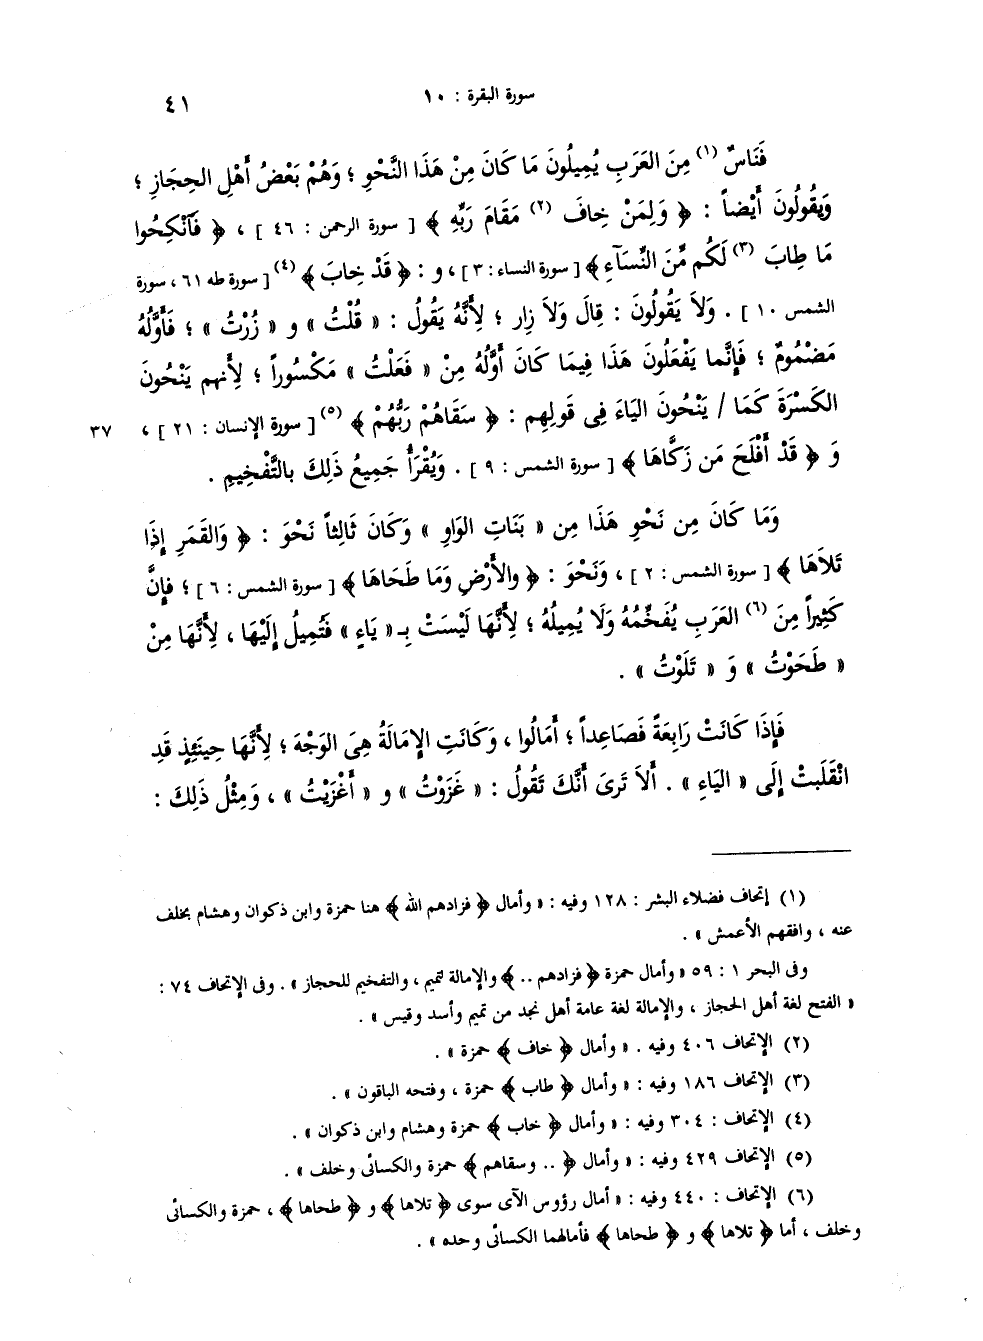 سورة البقرة : ١٠
٤١
فَنَاسٌ (١) مِنَ العَرَبِ يُمِيلُونَ مَا كَانَ مِنْ هَذَا النَّحْوِ ؛ وَهُمْ بَعْضُ أَهْلِ الحِجَازِ ؛
وَيَقُولُونَ أَيْضاً : ﴿ وَلِمَنْ خِافَ (٢) مَقَامَ رَبِّهِ ﴾ [ سورة الرحمن : ٤٦ ] ، ﴿ فَآنْكِحُوا
مَا طِابَ (٣) لَكُم مِّنَ النِّسَآءِ ﴾ [ سورة النساء : ٣ ] ، و : ﴿ قَدْ خِابَ ﴾ (٤) [ سورة طه ٦١ ، سورة
الشمس ١٠ ] . وَلاَ يَقُولُونَ : قِالَ وَلاَ زِار ؛ لِأَنَّهُ يَقُولُ : « قُلْتُ » و « زُرْتُ » ؛ فَأَوَّلُهُ
مَضْمُومٌ ؛ فَإِنَّما يَفْعَلُونَ هَذَا فِيمَا كَانَ أَوَّلُهُ مِنْ « فَعَلْتُ » مَكْسُوراً ؛ لِأَنهم يَنْحُونَ
الكَسْرَةَ كَمَا / يَنْحُونَ اليَاءَ فِى قَولِهِم : ﴿ سَقَاهُمْ رَبُّهُمْ ﴾ (٥) [ سورة الإنسان : ٢١ ] ،
٣٧
وَ ﴿ قَدْ أَفْلَحَ مَن زَكَّاهَا ﴾ [ سورة الشمس : ٩ ] . وَيُقْرَأُ جَمِيعُ ذَلِكَ بالتَّفْخِيمِ .
وَمَا كَانَ مِن نَحْوِ هَذَا مِن « بَنَاتِ الوَاوِ » وَكَانَ ثَالِثاً نَحْوَ : ﴿ وَالقَمَرِ إِذَا
تَلاَهَا ﴾ [ سورة الشمس : ٢ ] ، وَنَحْوَ : ﴿ والأَرْضِ وَمَا طَحَاهَا ﴾ [ سورة الشمس : ٦ ] ؛ فإِنَّ
كَثِيراً مِنَ (٦) العَرَبِ يُفَخِّمُهُ وَلَا يُمِيلُهُ ؛ لِأَنَّهَا لَيْسَتْ بِـ « يَاءٍ » فَتُمِيلُ إِلَيْهَا ، لِأَنَّهَا مِنْ
« طَحَوْتُ » وَ « تَلَوْتُ » .
فَإِذَا كَانَتْ رَابِعَةً فَصَاعِداً ؛ أَمَالُوا ، وَكَانَتِ الإِمَالَةُ هِىَ الوَجْهَ ؛ لِأَنَّهَا حِينَئِذٍ قَدِ
انْقَلَبتْ إِلَى « اليَاءِ » . أَلاَ تَرىَ أَنَّكَ تَقُولُ : « غَزَوْتُ » و « أَغْزَيْتُ » ، وَمِثْلُ ذَلِكَ :
(١) إتحاف فضلاء البشر : ١٢٨ وفيه : « وأمال ﴿ فزادهم الله ﴾ هنا حمزة وابن ذكوان وهشام بخلف
عنه ، وافقهم الأعمش » .
وفى البحر ١ : ٥٩ « وأمال حمزة ﴿ فزادهم .. ﴾ والإمالة لتميم ، والتفخيم للحجاز » . وفى الإتحاف ٧٤ :
« الفتح لغة أهل الحجاز ، والإمالة لغة عامة أهل نجد من تميم وأسد وقيس » .
(٢) الإتحاف ٤٠٦ وفيه . « وأمال ﴿ خاف ﴾ حمزة » .
(٣) الإتحاف ١٨٦ وفيه : « وأمال ﴿ طاب ﴾ حمزة ، وفتحه الباقون » .
(٤) الإتحاف : ٣٠٤ وفيه : « وأمال ﴿ خاب ﴾ حمزة وهشام وابن ذكوان » .
(٥) الإتحاف ٤٢٩ وفيه : « وأمال ﴿ .. وسقاهم ﴾ حمزة والكسائى وخلف » .
(٦) الإتحاف : ٤٤٠ وفيه : « أمال رؤوس الآى سوى ﴿ تلاها ﴾ و ﴿ طحاها ﴾ ، حمزة والكسائى
وخلف ، أما ﴿ تلاها ﴾ و ﴿ طحاها ﴾ فأمالهما الكسائى وحده » .